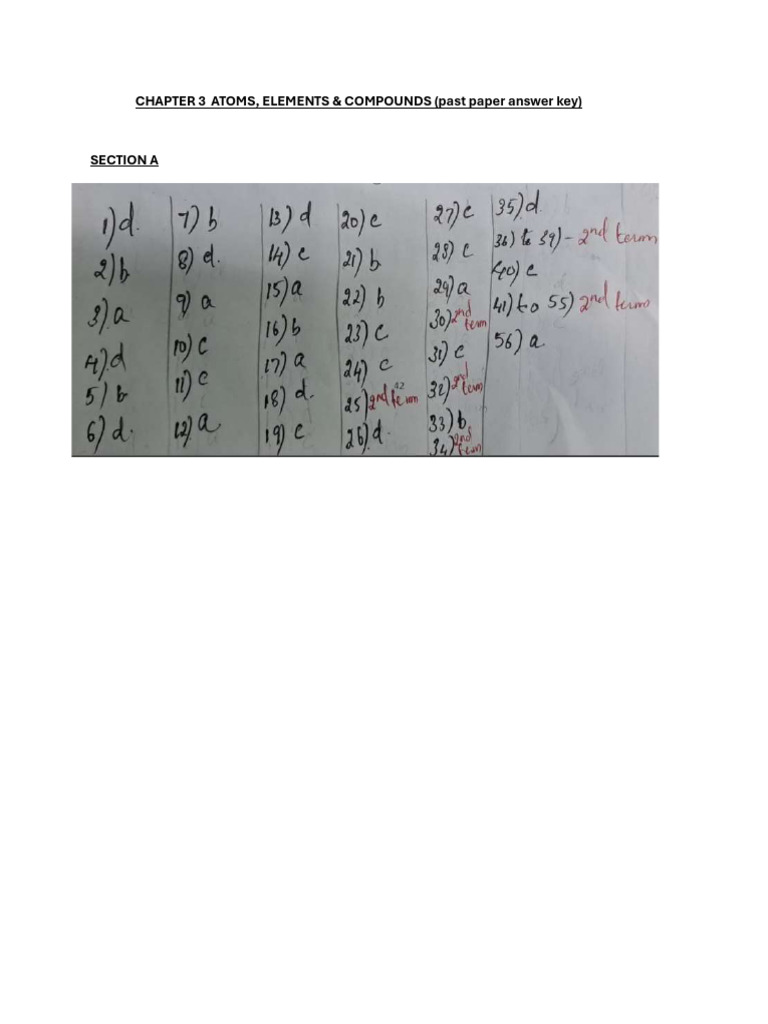 CHAPTER 3 ATOMS, ELEMENTS & COMPOUNDS (past paper answer key)
SECTION A
1) d.
2) b
3) a
4) d
5) b
6) d.
7) b
8) d.
9) a
10) c
11) c
12) a.
13) d
14) c
15) a
16) b
17) a
18) d.
19) c
20) c
21) b
22) b
23) c
24) c
42
25) 2nd term
26) d.
27) c
28) c
29) a
30) 2nd term
31) c
32) 2nd term
33) b
34) 2nd term
35) d.
36) to 39) - 2nd term
40) c
41) to 55) 2nd term
56) a.